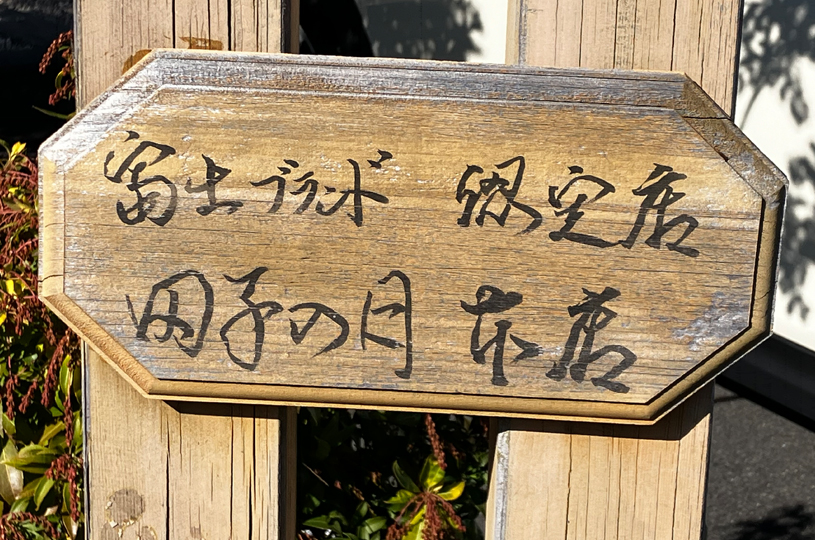 富士ブランド 認定店
田子の月 本店